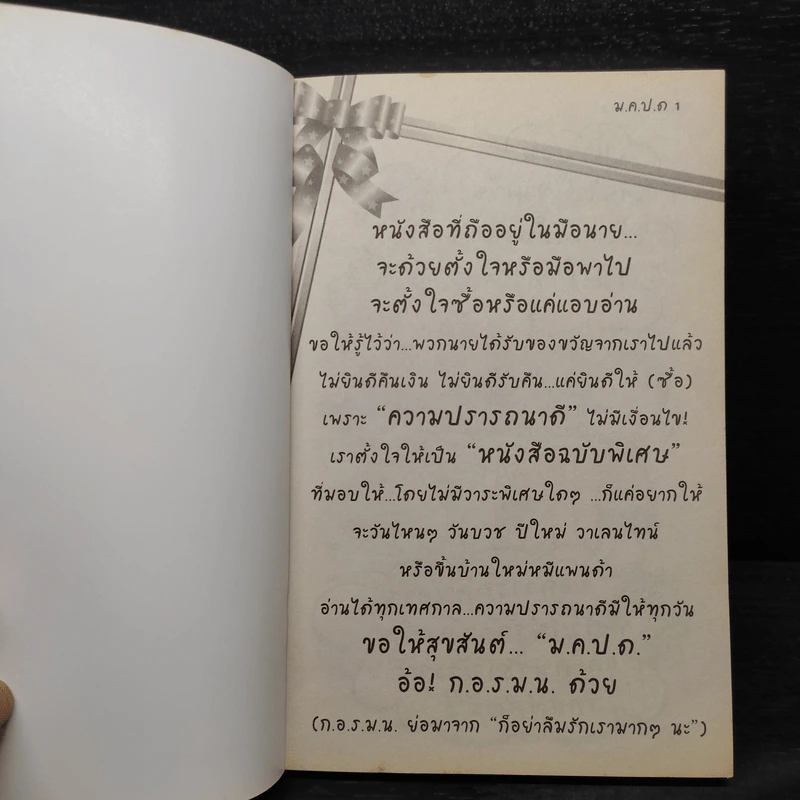 ม.ค.ป.ด 1
หนังสือที่ถืออยู่ในมือนาย...
จะด้วยตั้งใจหรือมือพาไป
จะตั้งใจซื้อหรือแค่แอบอ่าน
ขอให้รู้ไว้ว่า...พวกนายได้รับของขวัญจากเราไปแล้ว
ไม่ยินดีคืนเงิน ไม่ยินดีรับคืน...แค่ยินดีให้ (ซื้อ)
เพราะ “ความปรารถนาดี” ไม่มีเงื่อนไข!
เราตั้งใจให้เป็น “หนังสือฉบับพิเศษ”
ที่มอบให้...โดยไม่มีวาระพิเศษใดๆ ...ก็แค่อยากให้
จะวันไหนๆ วันบวช ปีใหม่ วาเลนไทน์
หรือขึ้นบ้านใหม่หมีแพนด้า
อ่านได้ทุกเทศกาล...ความปรารถนาดีมีให้ทุกวัน
ขอให้สุขสันต์... “ม.ค.ป.ด.”
อ้อ! ก.อ.ร.ม.น. ด้วย
(ก.อ.ร.ม.น. ย่อมาจาก “ก็อย่าลืมรักเรามากๆ นะ”)